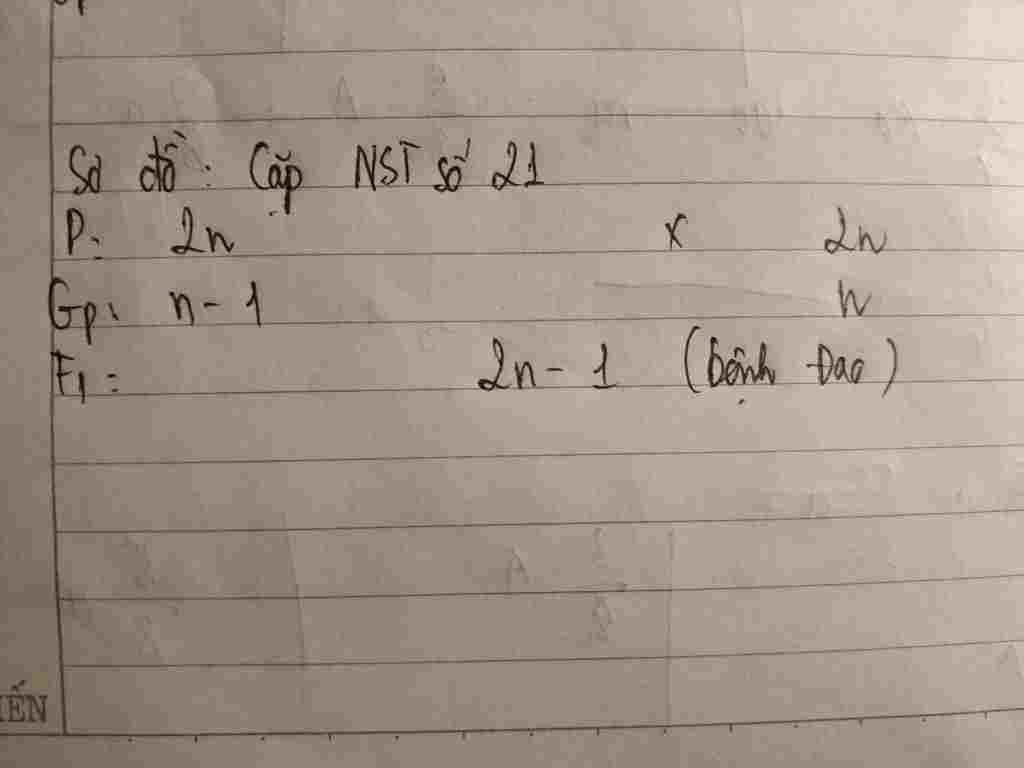 Sơ đồ: Cặp NST số 21
P: 2n x 2n
Gp: n-1 n
F1: 2n-1 (bệnh Đao)
IẾN